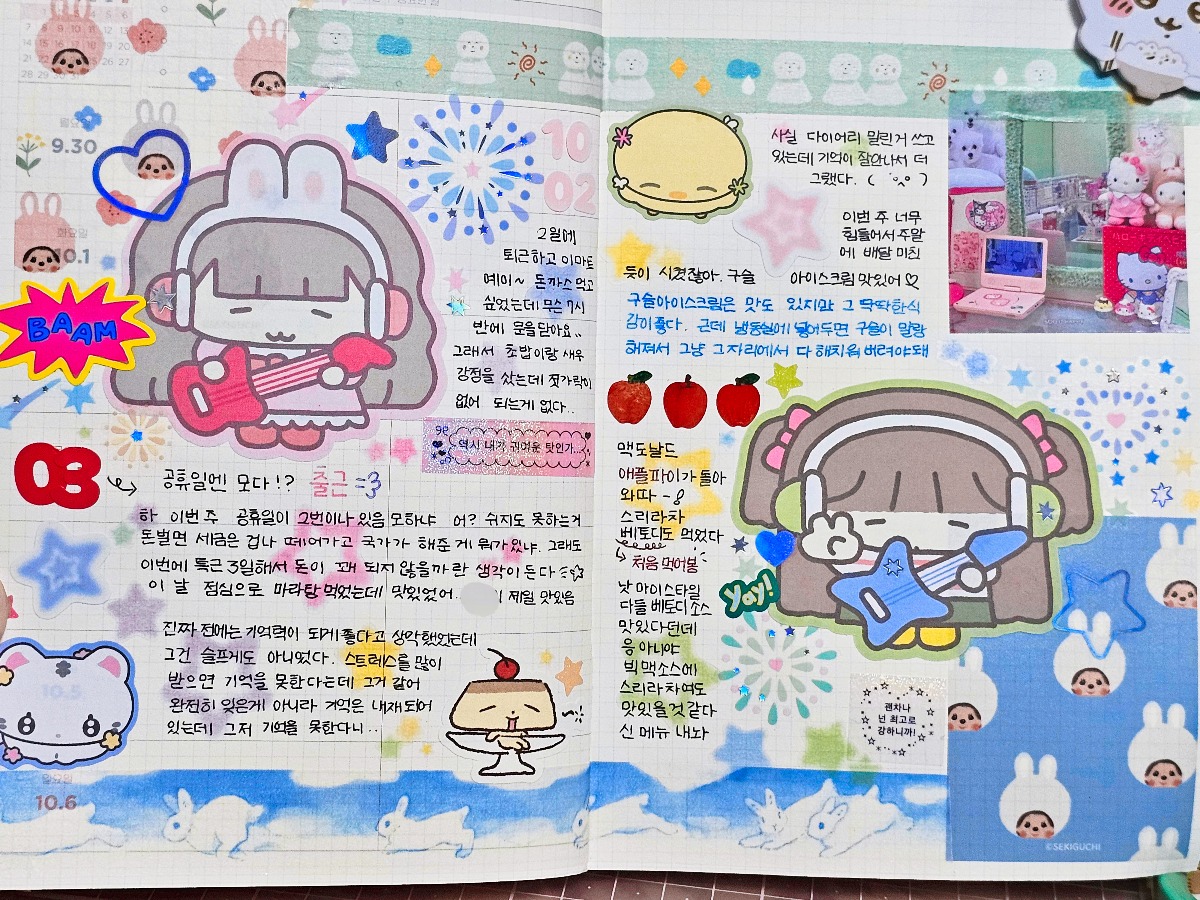 월요일
9.30
화요일
10.1
BAAM
10
02
2월에
퇴근하고 이마트
예이~ 돈까스 먹고
싶었는데 무슨 7시
반에 문을 닫아요..
그래서 초밥이랑 새우
강정을 샀는데 젓가락이
없어 되는게 없다..
역시 내가 귀여운 탓인가...
03
공휴일엔 모다!? 출근 =3
하 이번 주 공휴일이 그번이나 있음 모하냐 어? 쉬지도 못하는거
돈벌면 세금은 겁나 떼어가고 국가가 해준 게 뭐가 있냐. 그래도
이번에 특근 3일해서 돈이 꽤 되지 않을까란 생각이 든다
이 날 점심으로 마라탕 먹었는데 맛있었어. 제일 맛있음
진짜 전에는 기억력이 되게 좋다고 생각했었는데
그건 슬프게도 아니었다. 스트레스를 많이
받으면 기억을 못한다는데 그거 같어
완전히 잊은게 아니라 기억은 내재되어
있는데 그저 기억을 못한다니..
10.5
월요일
10.6
사실 다이어리 밀린거 쓰고
있는데 기억이 잘안나서 더
그랬다.
이번 주 너무
힘들어서 주말
에 배달 미친
듯이 시켰잖아. 구슬 아이스크림 맛있어♡
구슬아이스크림은 맛도 있지만 그 딱딱한식
감이 좋다. 근데 냉동실에 넣어두면 구슬이 말랑
해져서 그냥 그자리에서 다 해치워 버려야돼
맥도날드
애플파이가 돌아
와따
스리라차
베토디도 먹었다
처음 먹어봄
낫 마이스타일
다들 베토디 소스
맛있다던데
응 아니야
빅맥소스에
스리라차여도
맛있을것 같다
신 메뉴 내놔
Yay!
괜차나
넌 최고로
강하니까!
©SEKIGUCHI